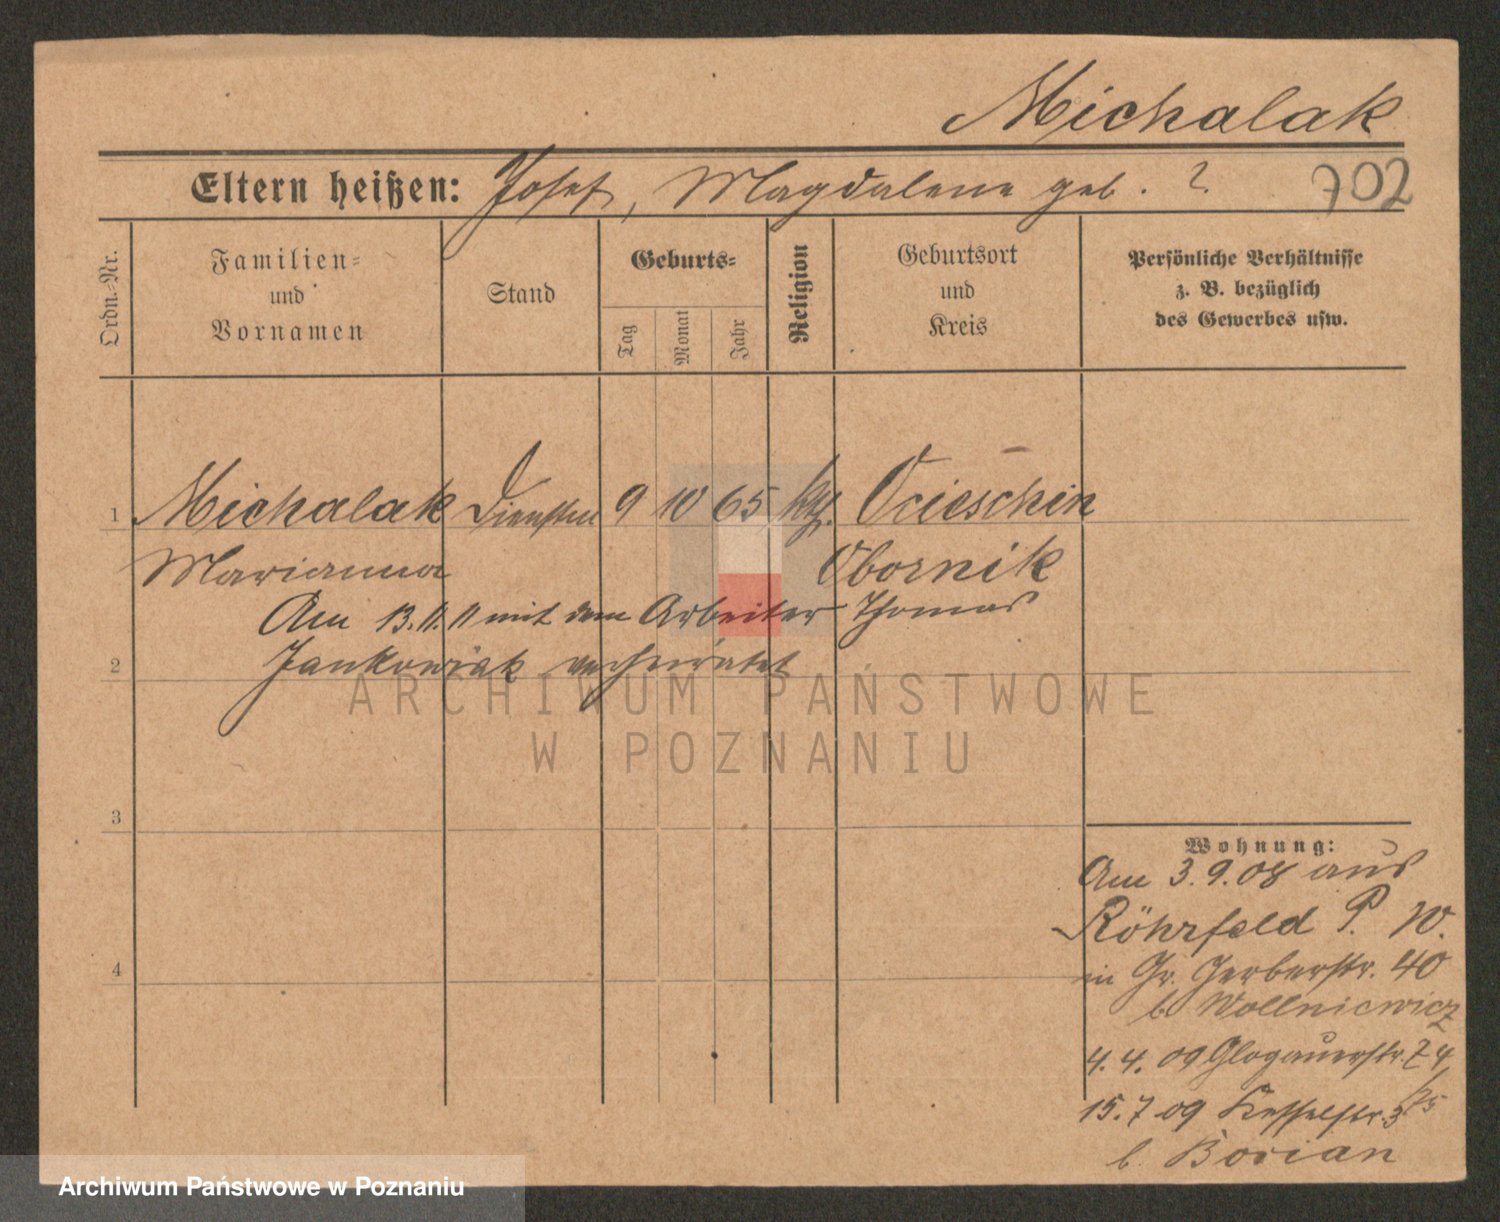 Michalak
Eltern heißen: Josef, Magdalene geb. ?
702
Ordn.-Nr.
Familien-
und
Vornamen
Stand
Geburts-
Tag
Monat
Jahr
Religion
Geburtsort
und
Kreis
Persönliche Verhältnisse
z. B. bezüglich
des Gewerbes usw.
1 Michalak 9 10 65 kth. Ocieschin
Marianna Obornik
Am 13.11.11 mit dem Arbeiter Thomas
2 Jankowiak verheiratet
ARCHIWUM PAŃSTWOWE
W POZNANIU
3
Wohnung:
Am 3.9.08 aus
Röhrfeld P. W.
4
in Gr. Gerberstr. 40
b. Wollniewicz
4.4.09 Glogauerstr. 74
15.7.09 Kesselstr. 3
b. Borian
Archiwum Państwowe w Poznaniu